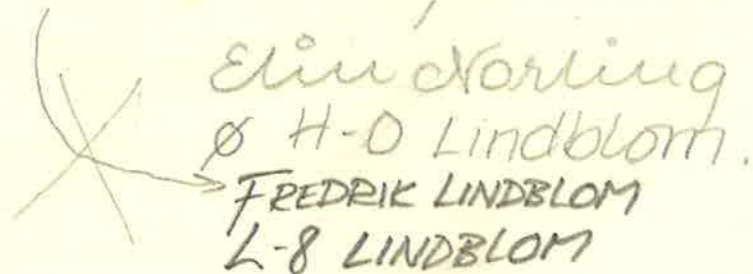 Elin Norling
Ø H-O Lindblom.
FREDRIK LINDBLOM
L-8 LINDBLOM